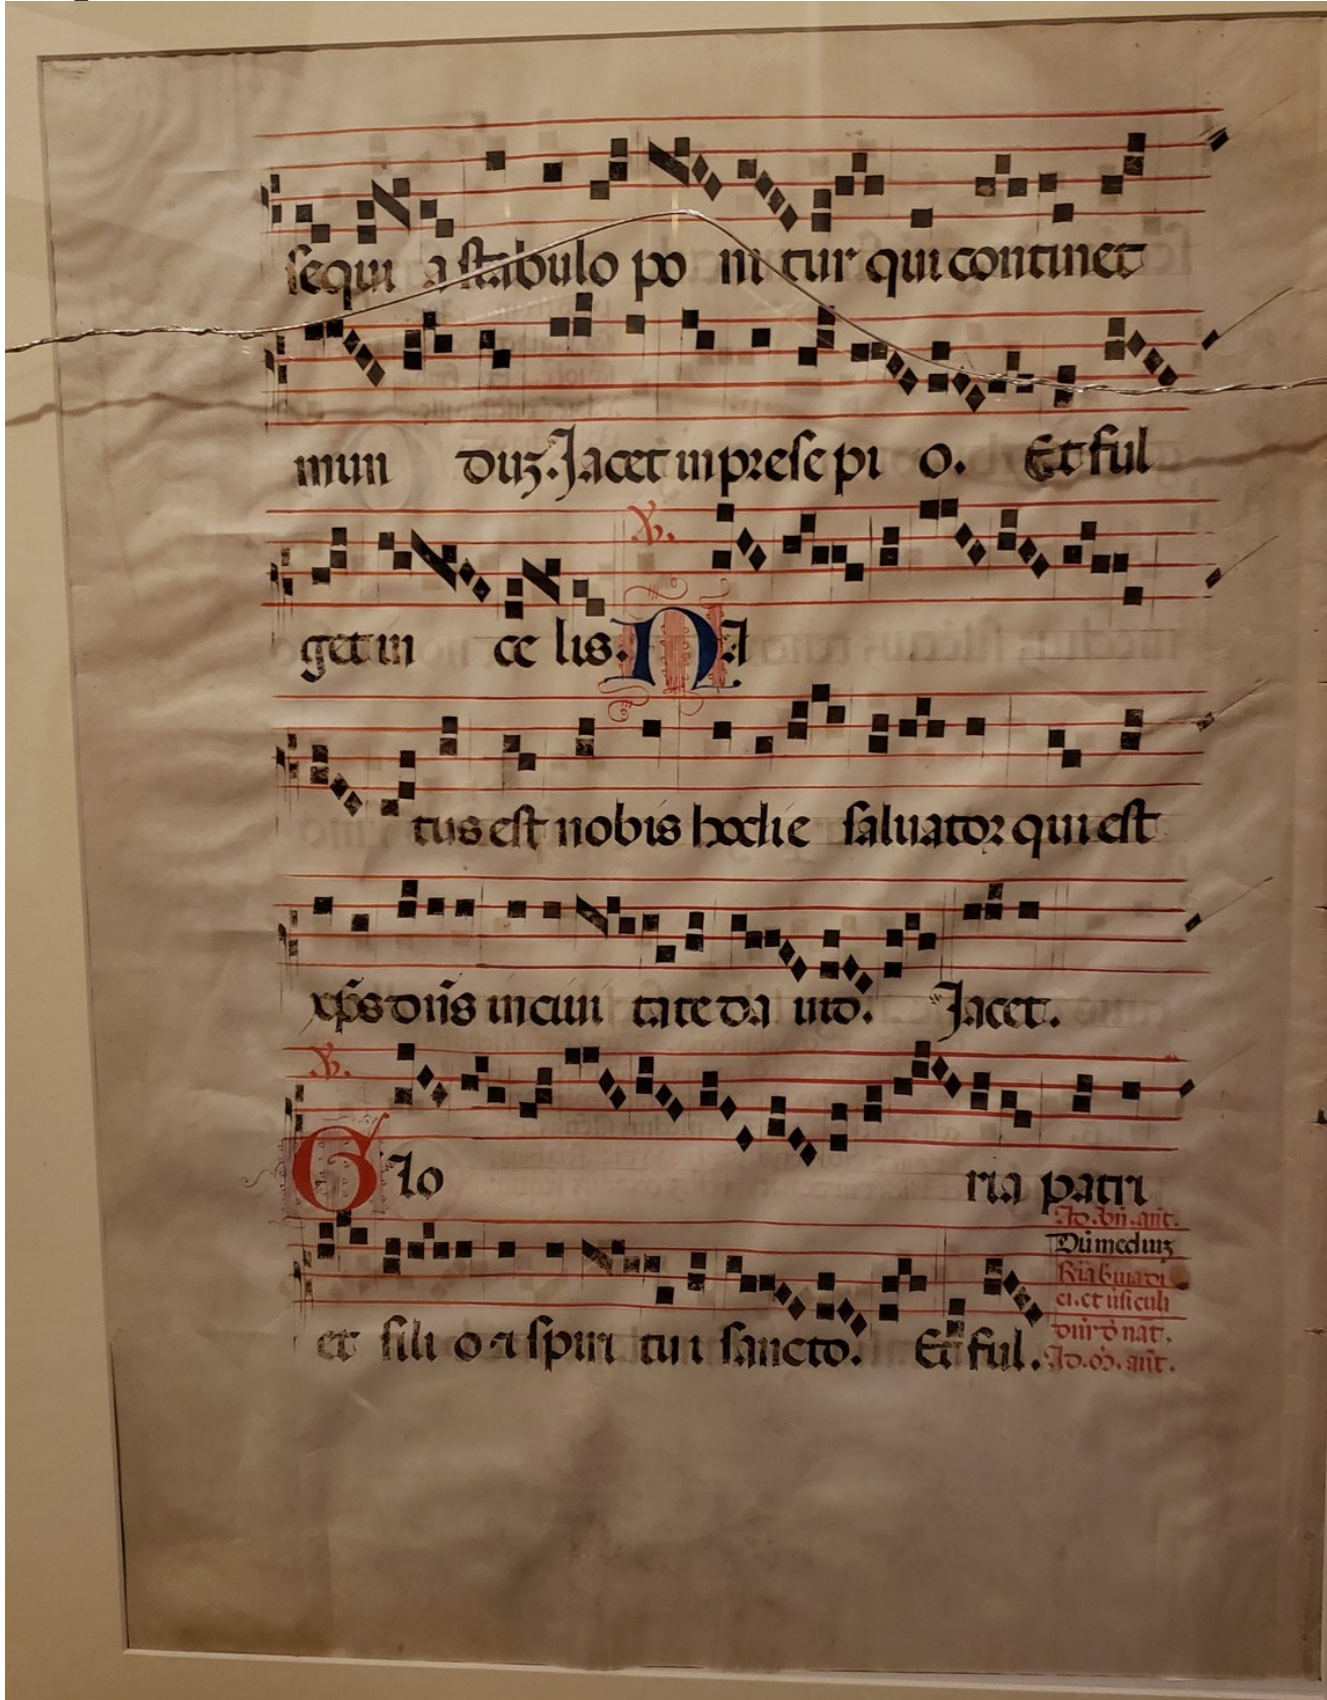 sequi a stabulo po ni tur qui continet
mun duz. Jacet in prese pi o. Et ful
get in ce lis. ℣. NA
tus est nobis hodie saluator qui est
xp̄s dn̄s in ciui tate da uid. Jacet.
℣. Glo ria patri
et fili o ⁊ spiri tu i sancto. Et ful.
Dū mediuz